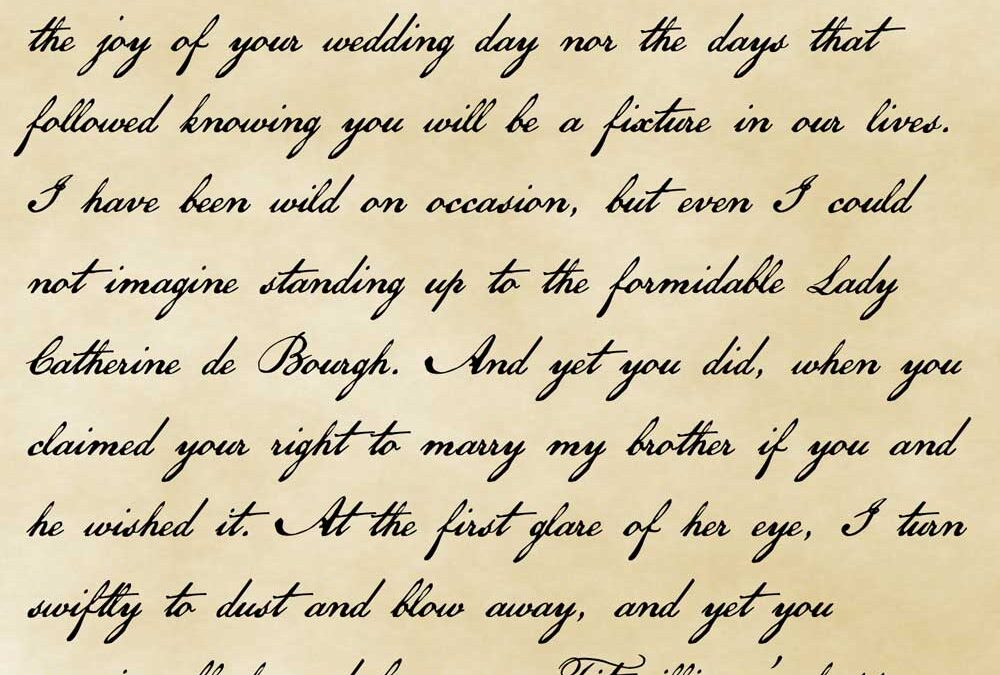 the joy of your wedding day nor the days that
followed knowing you will be a fixture in our lives.
I have been wild on occasion, but even I could
not imagine standing up to the formidable Lady
Catherine de Bourgh. And yet you did, when you
claimed your right to marry my brother if you and
he wished it. At the first glare of her eye, I turn
swiftly to dust and blow away, and yet you